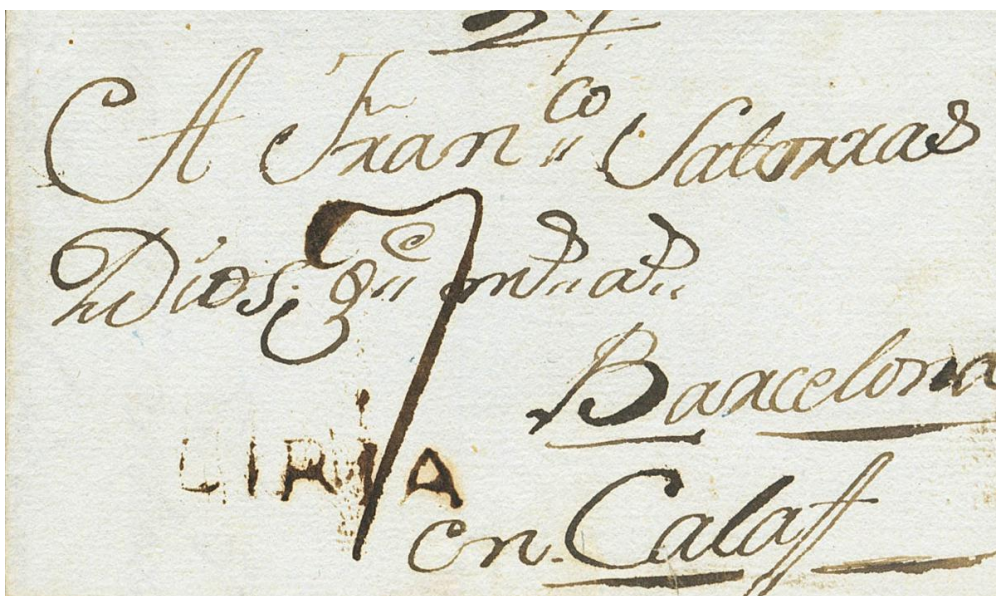 A Fran.co Satorras
Dios g.e m.s a.s
Barcelona
7
LIRIA
en Calaff